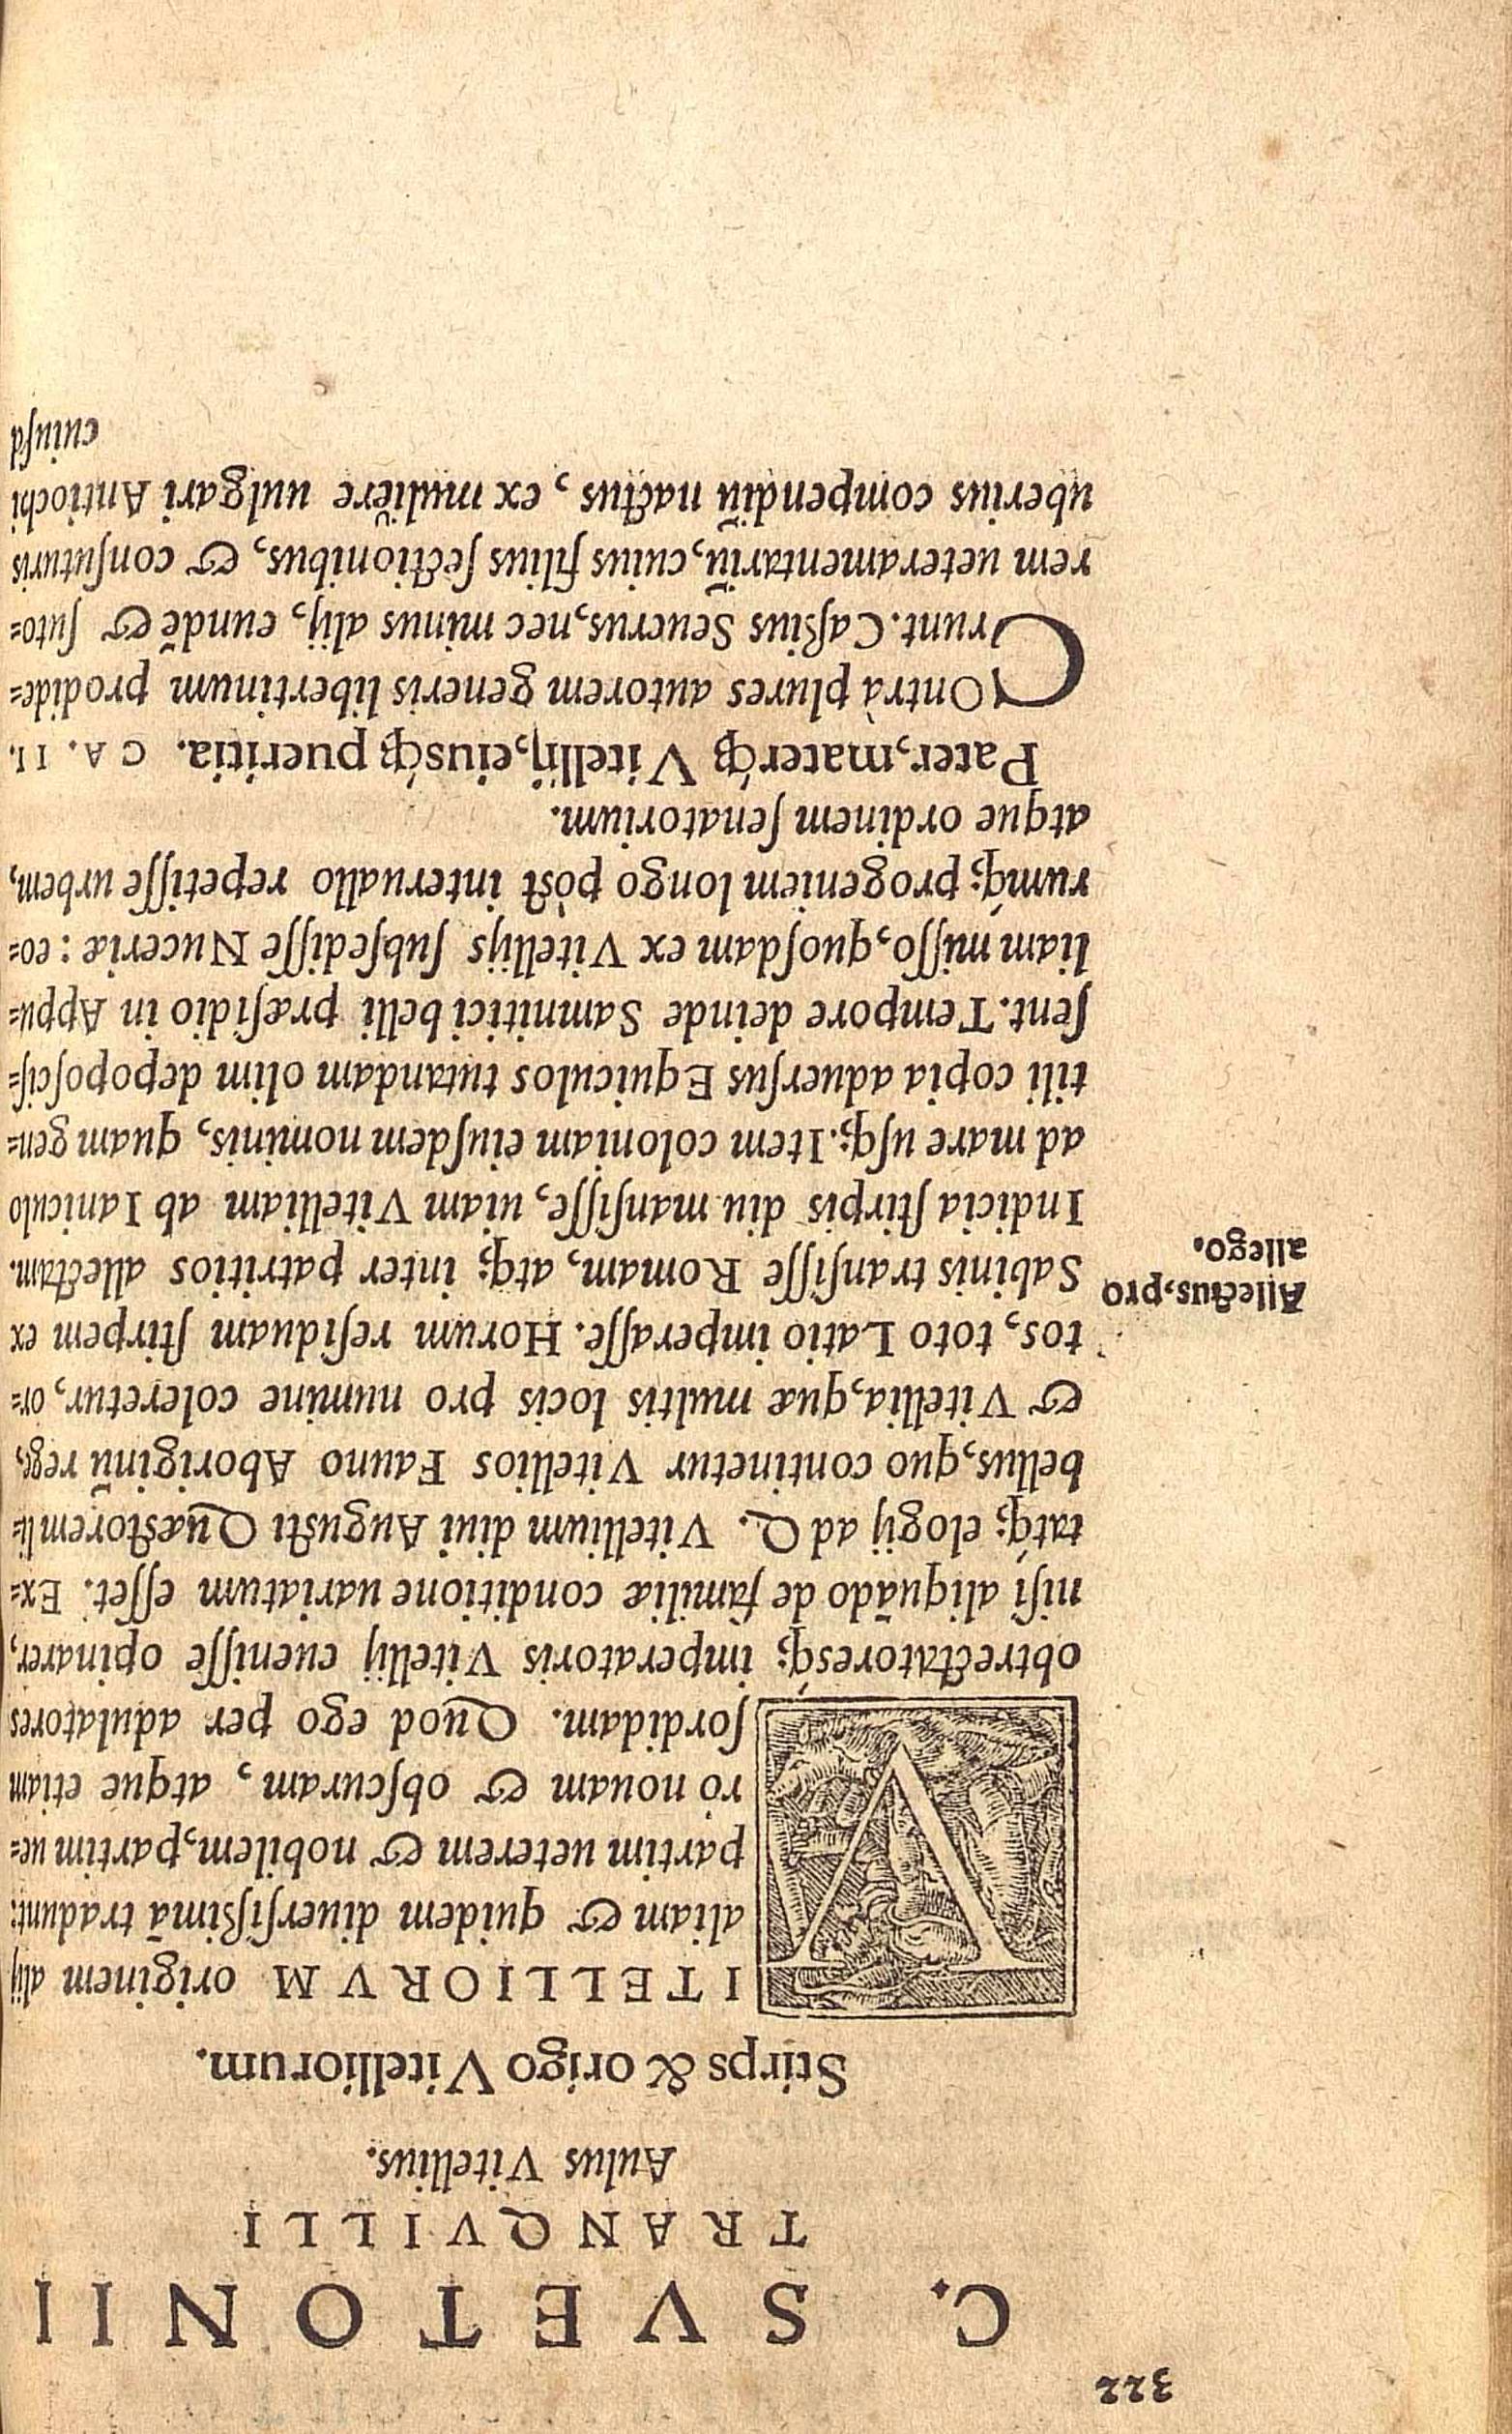 322
C. SVETONII
TRANQVILLI
Aulus Vitellius.
Stirps & origo Vitelliorum.
VITELLIORVM originem alij
aliam & quidem diuersißimā tradunt:
partim ueterem & nobilem, partim ue=
rò nouam & obscuram, atque etiam
sordidam. Quod ego per adulatores
obtrectatoresq́; imperatoris Vitellij euenisse opinarer,
nisi aliquādo de familiæ conditione uariatum esset. Ex=
tatq́; elogij ad Q. Vitellium diui Augusti Quæstorem li=
bellus, quo continetur Vitellios Fauno Aboriginū rege,
& Vitellia, quæ multis locis pro numine coleretur, or=
tos, toto Latio imperasse. Horum residuam stirpem ex
Sabinis transisse Romam, atq; inter patritios allectam.
Allectus, pro
allego.
Indicia stirpis diu mansisse, uiam Vitelliam ab Ianiculo
ad mare usq;. Item coloniam eiusdem nominis, quam gen=
tili copia aduersus Equiculos tutandam olim depoposcis=
sent. Tempore deinde Samnitici belli præsidio in Appu=
liam misso, quosdam ex Vitellijs subsedisse Nuceriæ: eo=
rumq́; progeniem longo pòst interuallo repetisse urbem,
atque ordinem senatorium.
Pater, materq́; Vitellij, eiusq́; pueritia. CA. II.
COntrà plures autorem generis libertinum prodide=
runt. Caßius Seuerus, nec minus alij, eundē & suto=
rem ueteramentariū, cuius filius sectionibus, & consuturis
uberius compendiū nactus, ex muliere uulgari Antiochi
cuiusd